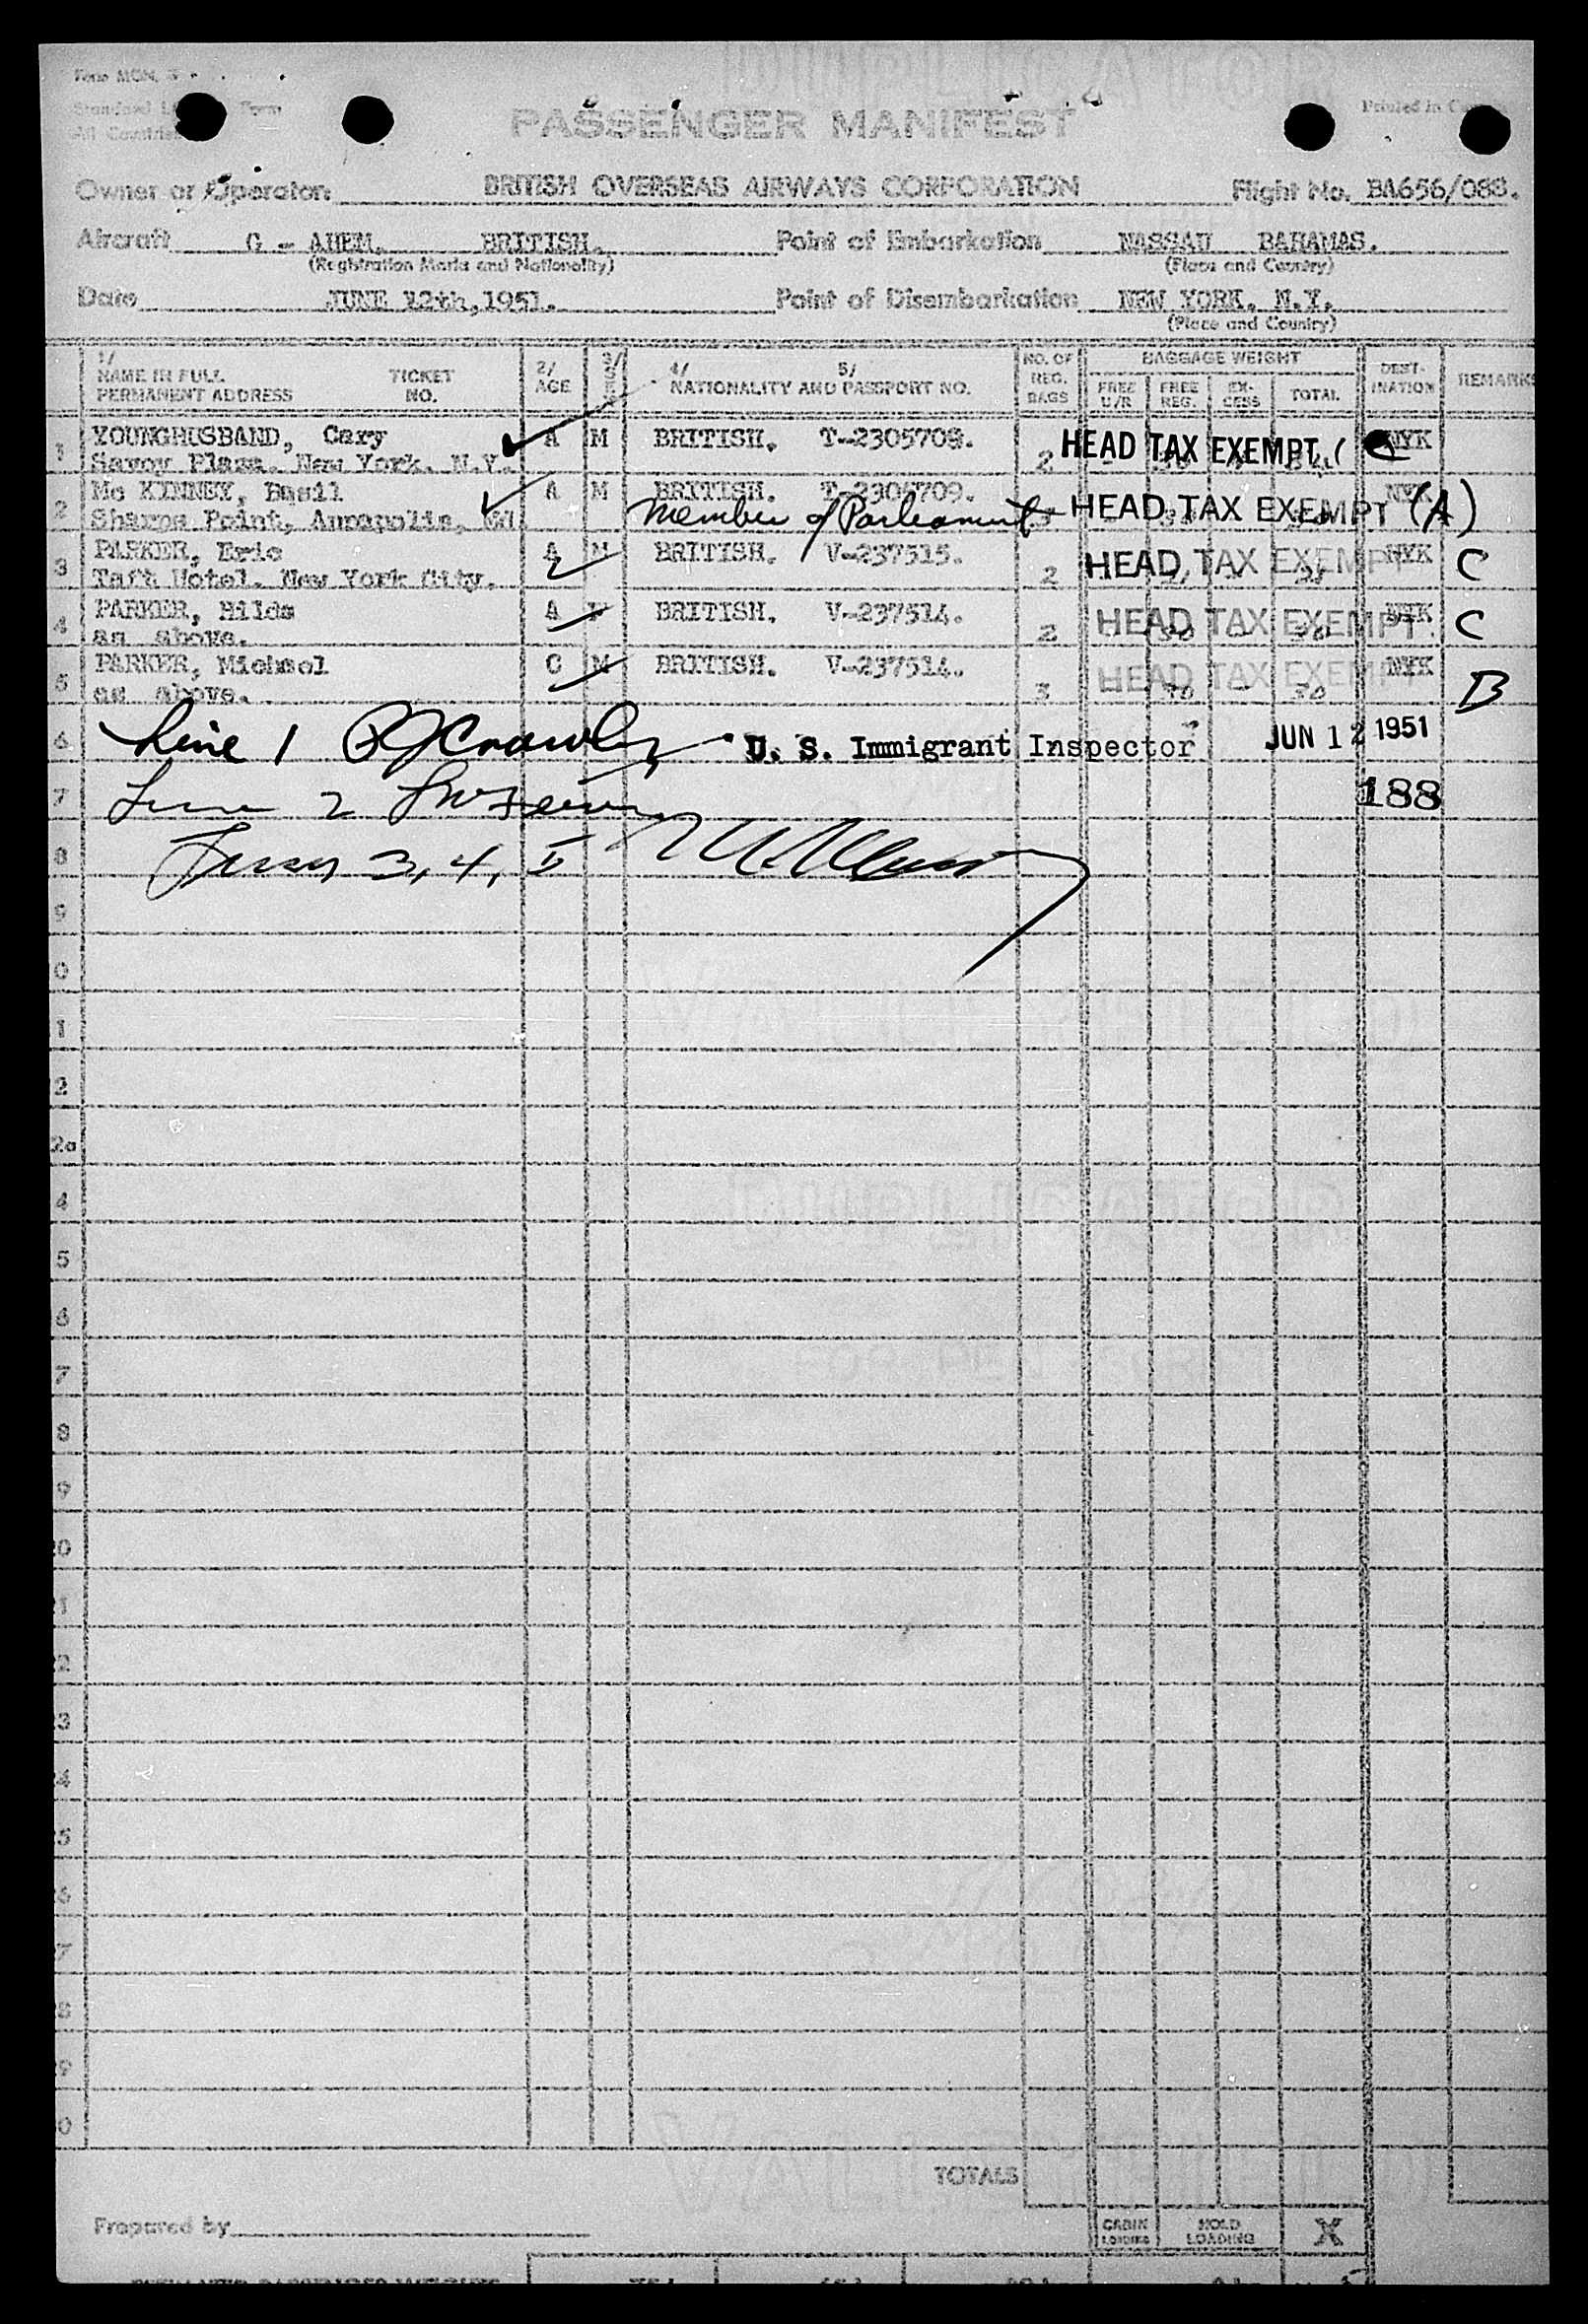 Form
All Countries
Printed in
PASSENGER MANIFEST
Owner or Operator: BRITISH OVERSEAS AIRWAYS CORPORATION Flight No. BA656/088.
Aircraft G - AHEM. BRITISH. Point of Embarkation NASSAU BAHAMAS.
(Registration Marks and Nationality) (Place and Country)
Date JUNE 12th, 1951. Point of Disembarkation NEW YORK. N.Y.
(Place and Country)
1/ NAME IN FULL PERMANENT ADDRESS TICKET NO. 2/ AGE 3/ SEX 4/ 5/ NATIONALITY AND PASSPORT NO. NO. OF REG. BAGS BAGGAGE WEIGHT FREE U/R FREE REG. EX-CESS TOTAL DEST-INATION REMARKS
1 YOUNGHUSBAND, Cary A M BRITISH. T-2305708. 2 HEAD TAX EXEMPT ( C NYK
Savoy Plaza. New York. N.Y.
2 Mc KINNEY, Basil A M BRITISH. T-2305709. NYK
Sharps Point, Annapolis, Md. Member of Parliament 3 HEAD TAX EXEMPT (A)
3 PARKER, Eric A M BRITISH. V-237515. 2 HEAD TAX EXEMPT NYK C
Taft Hotel. New York City.
4 PARKER, Hilda A F BRITISH. V-237514. 2 HEAD TAX EXEMPT NYK C
as above.
5 PARKER, Michael C M BRITISH. V-237514. 3 HEAD TAX EXEMPT NYK B
as above.
6 Line 1 U. S. Immigrant Inspector JUN 12 1951
7 Line 2 188
8 Lines 3, 4, 5
9
0
1
2
2a
4
5
6
7
8
9
0
1
2
3
4
5
6
7
8
9
0
TOTALS
Prepared by
CABIN LOADING HOLD LOADING X